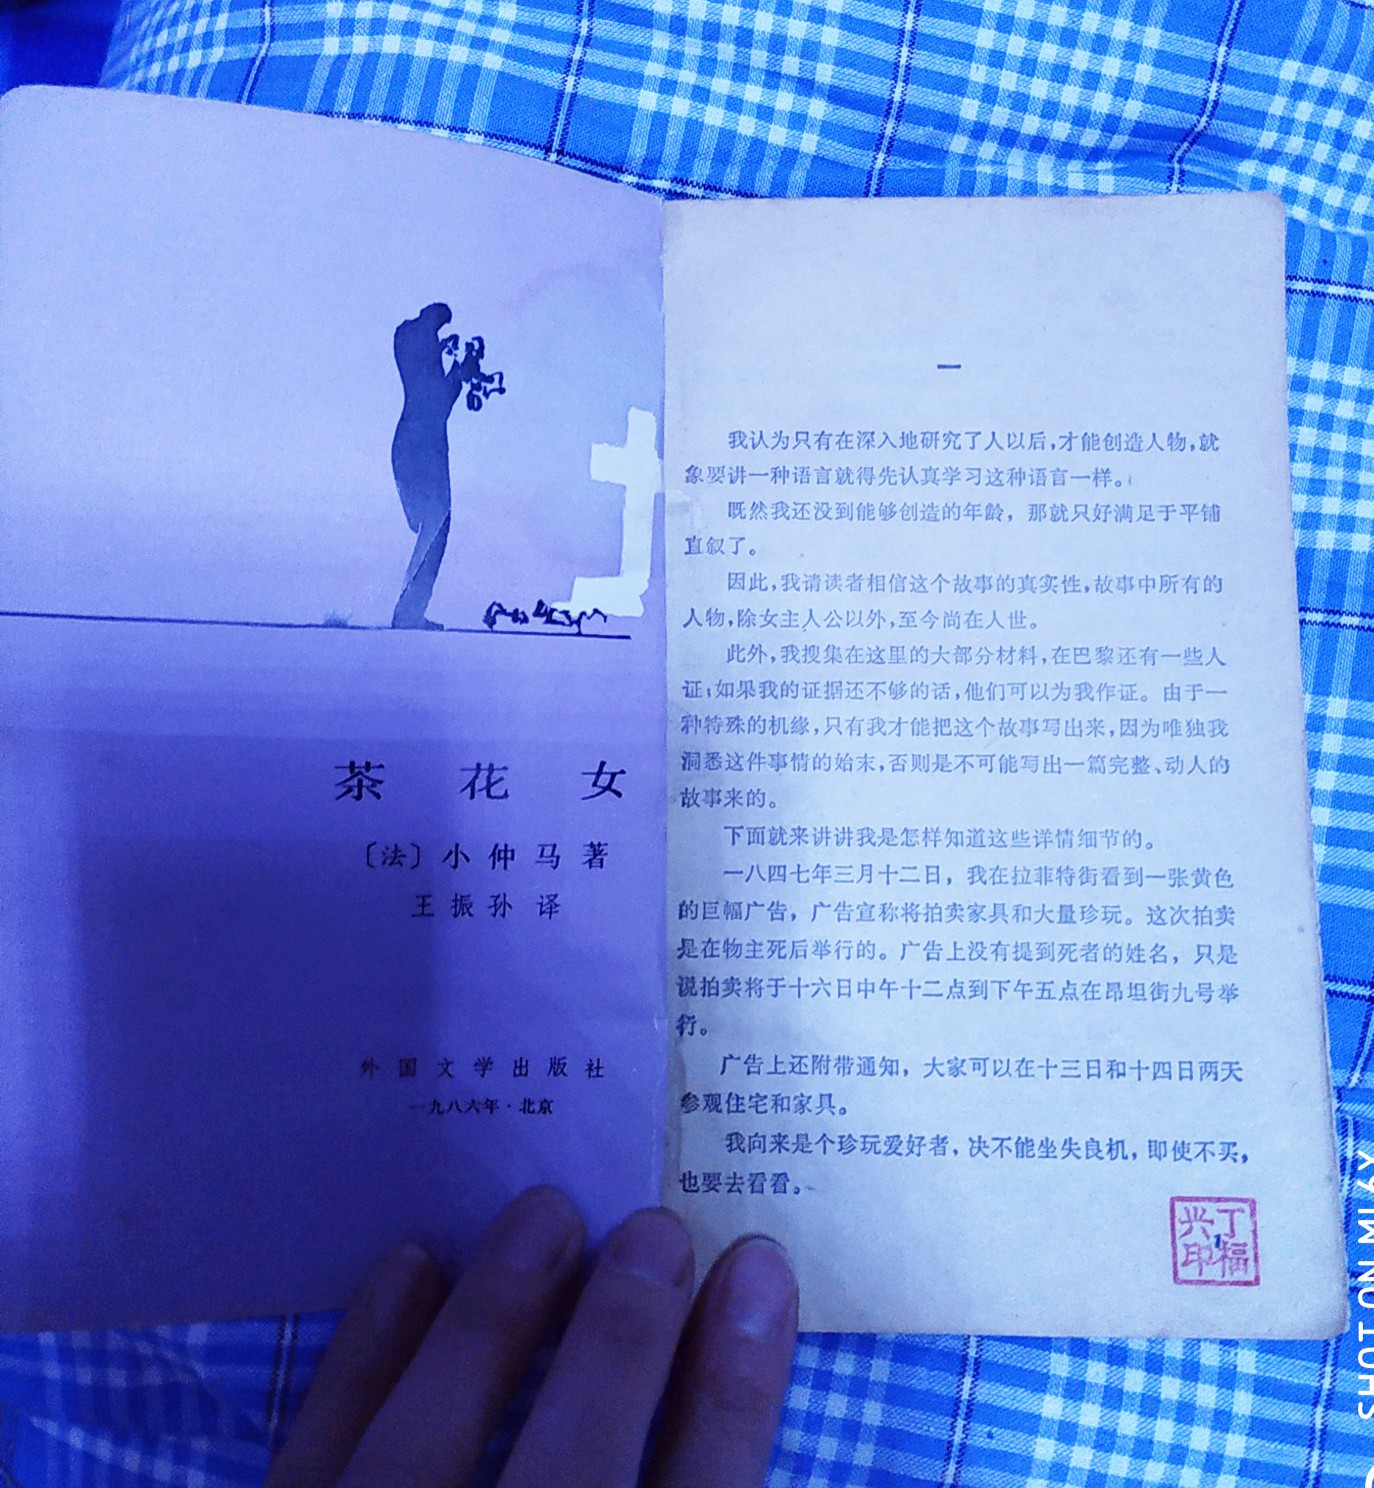 茶花女
〔法〕小仲马著
王振孙译
外国文学出版社
一九八六年·北京
一
我认为只有在深入地研究了人以后,才能创造人物,就
象要讲一种语言就得先认真学习这种语言一样。
既然我还没到能够创造的年龄，那就只好满足于平铺
直叙了。
因此,我请读者相信这个故事的真实性,故事中所有的
人物,除女主人公以外,至今尚在人世。
此外,我搜集在这里的大部分材料,在巴黎还有一些人
证;如果我的证据还不够的话,他们可以为我作证。由于一
种特殊的机缘,只有我才能把这个故事写出来,因为唯独我
洞悉这件事情的始末,否则是不可能写出一篇完整、动人的
故事来的。
下面就来讲讲我是怎样知道这些详情细节的。
一八四七年三月十二日，我在拉菲特街看到一张黄色
的巨幅广告，广告宣称将拍卖家具和大量珍玩。这次拍卖
是在物主死后举行的。广告上没有提到死者的姓名，只是
说拍卖将于十六日中午十二点到下午五点在昂坦街九号举
行。
广告上还附带通知，大家可以在十三日和十四日两天
参观住宅和家具。
我向来是个珍玩爱好者，决不能坐失良机，即使不买，
也要去看看。
丁福兴印
1
SHOT ON MI 6X